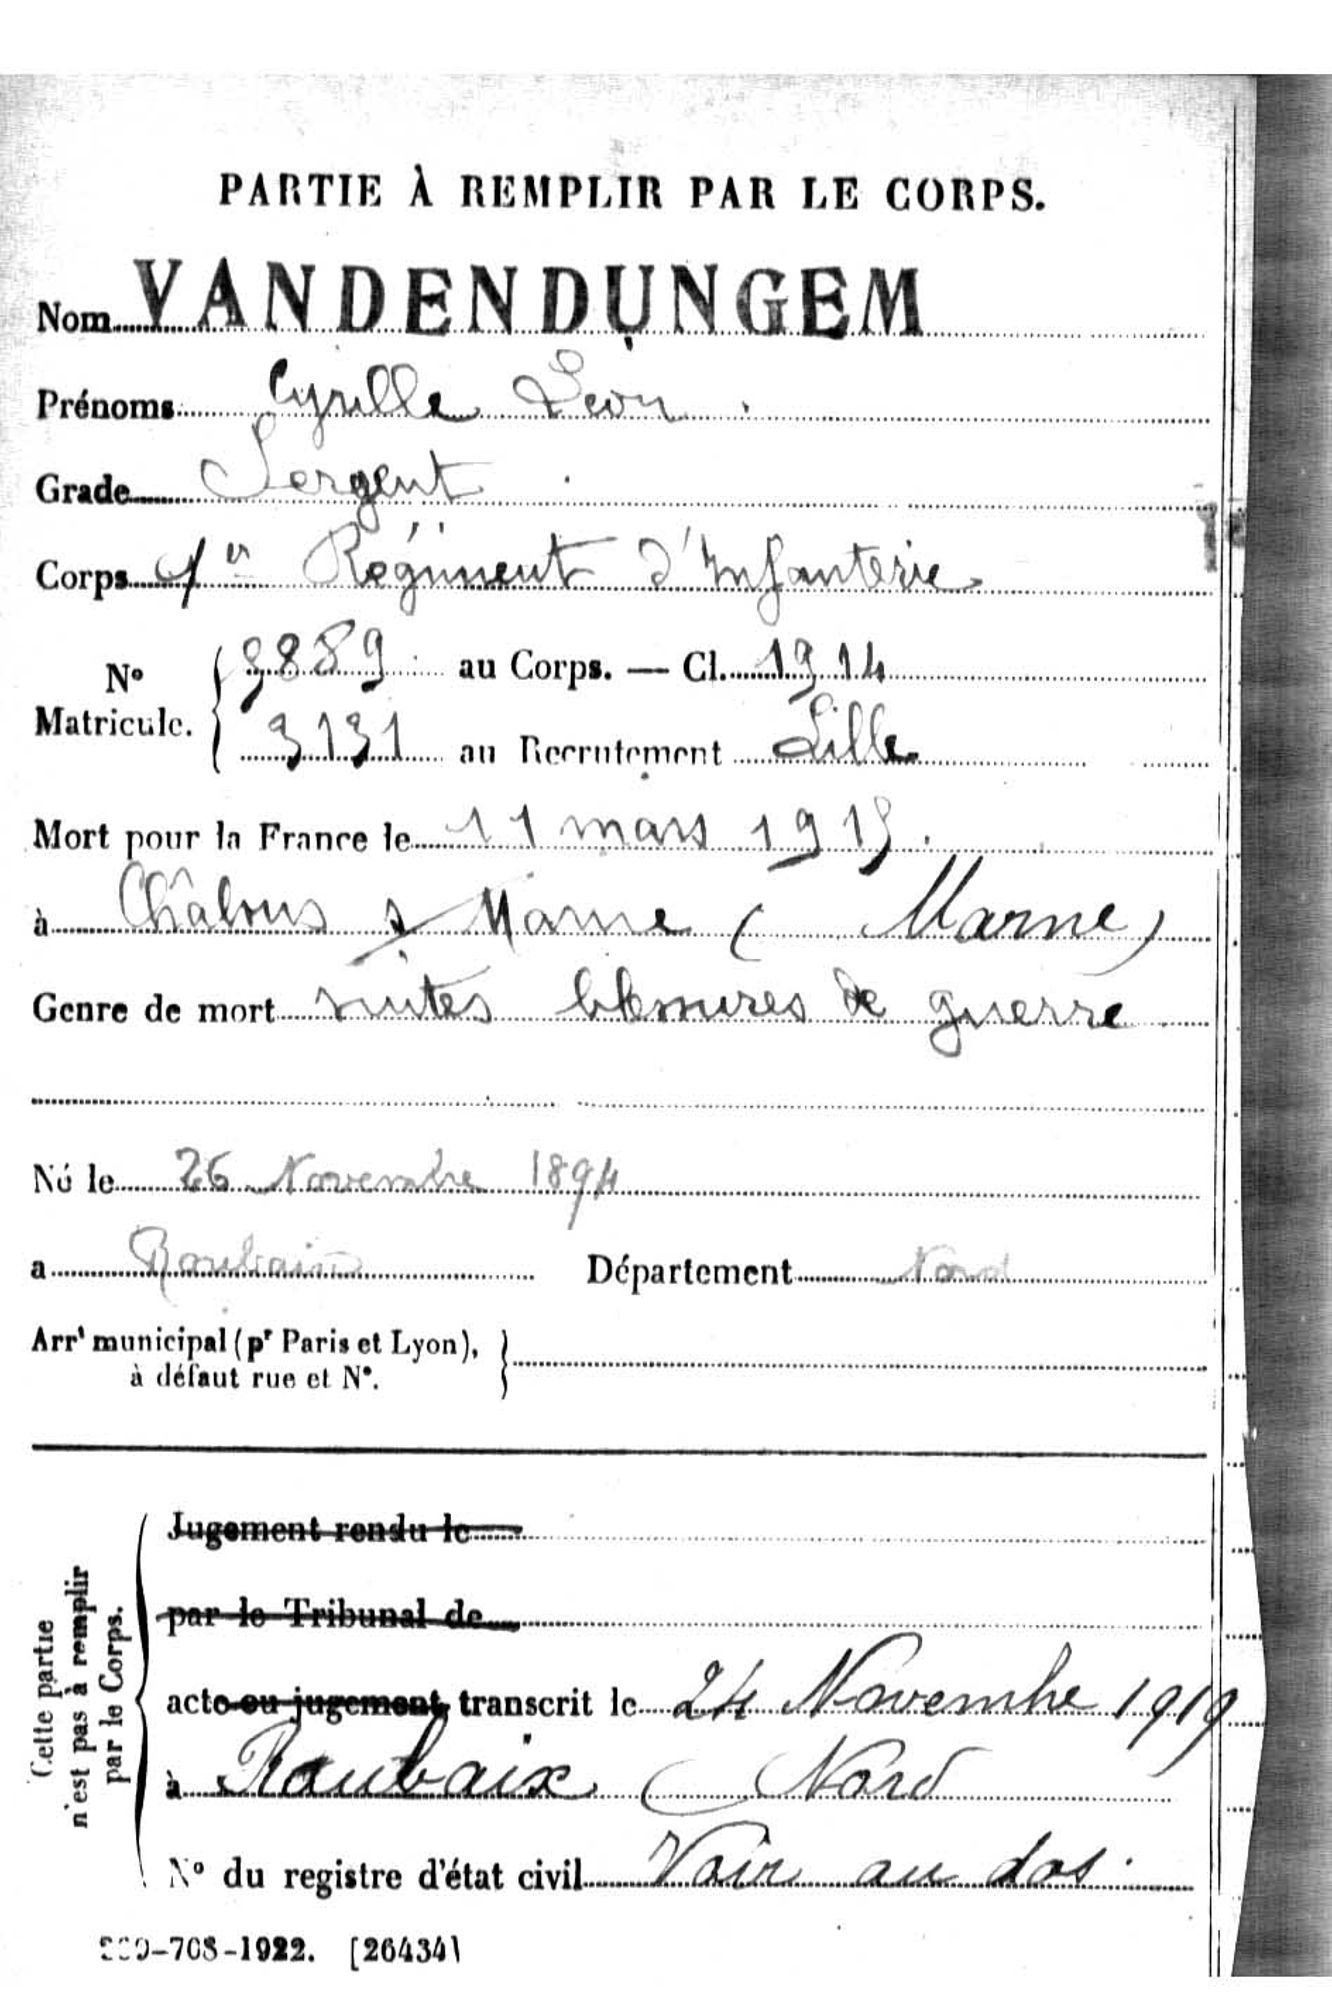 PARTIE À REMPLIR PAR LE CORPS.
Nom VANDENDUNGEM
Prénoms Cyrille Léon
Grade Sergent
Corps 1er Régiment d'Infanterie
No Matricule. { 9889 au Corps. — Cl. 1914
3131 au Recrutement Lille
Mort pour la France le 11 mars 1915.
à Châlons s/ Marne (Marne)
Genre de mort suites blessures de guerre
Né le 26 Novembre 1894
a Roubaix Département Nord
Arrt municipal (pr Paris et Lyon),
à défaut rue et No.
Cette partie n'est pas à remplir par le Corps.
Jugement rendu le
par le Tribunal de
acte ou jugement transcrit le 24 Novembre 1919
à Roubaix (Nord
No du registre d'état civil Voir au dos.
-708-1922. [26434]